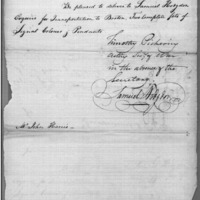 Be pleased to deliver to Samuel Hodgdon
Esquire for Transportation to Boston Two Complete sets of
Signal Colours & Pendants
Timothy Pickering
in the absence of the
Secretary
Samuel Hodgdon
Mr John Harris